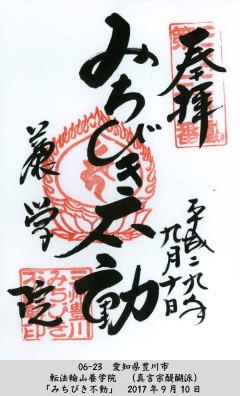 奉拝
平成二九年
九月十日
みちびき不動
養学院
06-23　愛知県豊川市
転法輪山養学院　（真言宗醍醐派）
「みちびき不動」　2017年9月10日